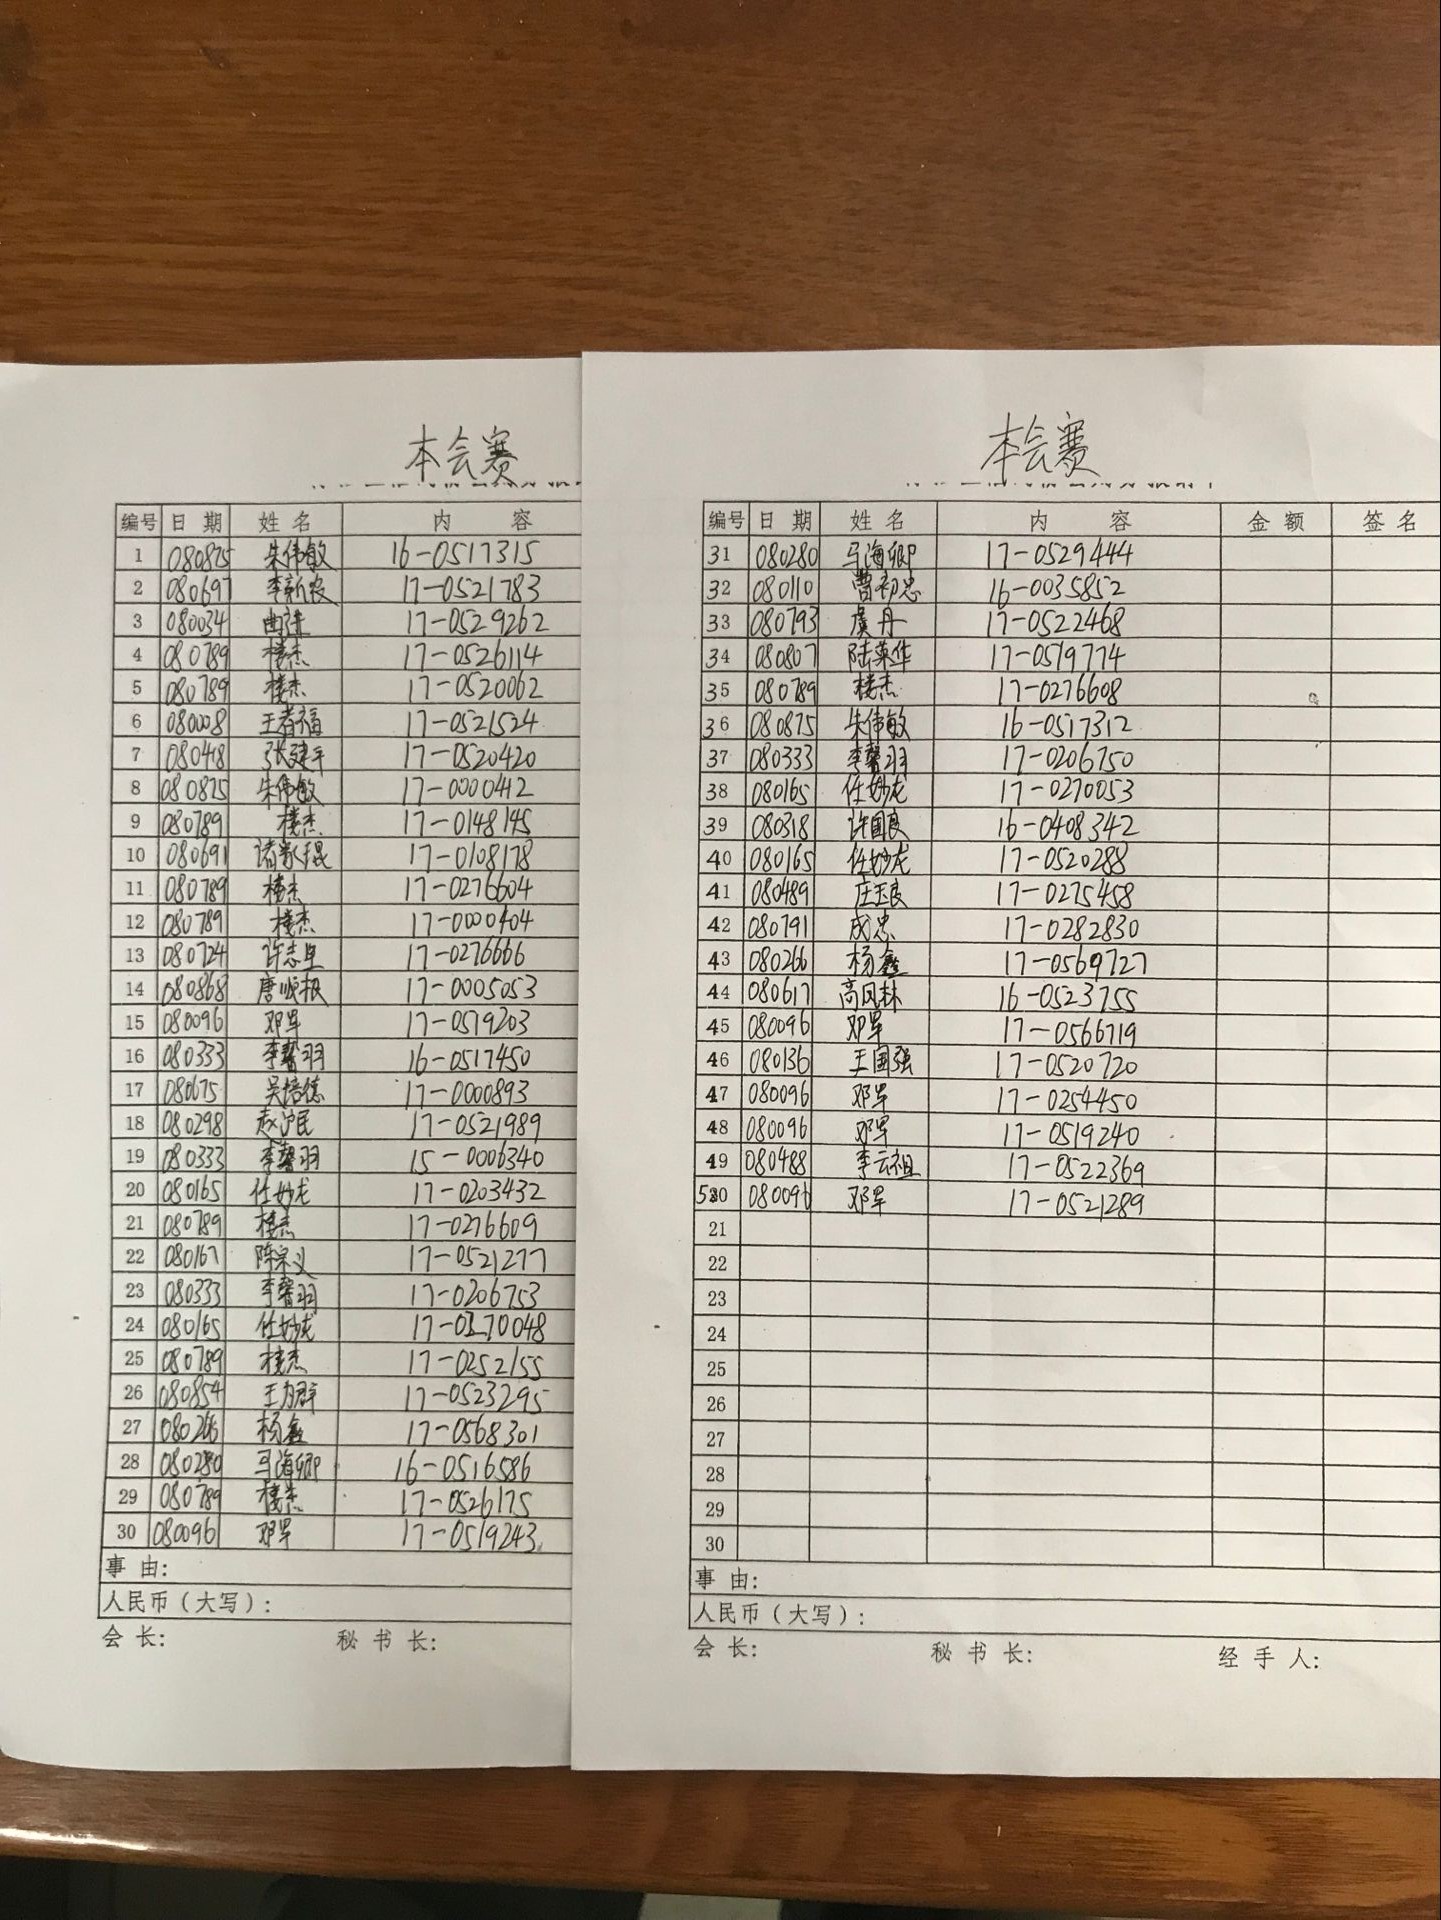 本会赛
编号 日期 姓名 内容
1 080875 朱伟敏 16-0517315
2 080697 李新农 17-0521783
3 080034 曲进 17-0529262
4 080789 楼杰 17-0526114
5 080789 楼杰 17-0520062
6 080008 王者福 17-0521524
7 080418 张建平 17-0520420
8 080875 朱伟敏 17-0000442
9 080789 楼杰 17-0148145
10 080691 17-0108178
11 080789 楼杰 17-0276604
12 080789 楼杰 17-0000404
13 080724 许志里 17-0276666
14 080868 唐顺根 17-0005053
15 080096 邓军 17-0519203
16 080333 李馨羽 16-0517450
17 080675 吴培德 17-0000893
18 080298 赵沪民 17-0521989
19 080333 李馨羽 15-0006340
20 080165 任妙龙 17-0203432
21 080789 楼杰 17-0276609
22 080167 陈宗义 17-0521277
23 080333 李馨羽 17-0206753
24 080165 任妙龙 17-0270048
25 080789 楼杰 17-0252155
26 080854 王为群 17-0523295
27 080266 杨鑫 17-0568301
28 080280 马海卿 16-0516586
29 080789 楼杰 17-0526175
30 080096 邓军 17-0519243
事由:
人民币（大写）:
会长: 秘书长:
本会赛
编号 日期 姓名 内容 金额 签名
31 080280 马海卿 17-0529444
32 080110 曹初忠 16-0035852
33 080793 虞丹 17-0522468
34 080807 陆荣华 17-0519774
35 080789 楼杰 17-0276608
36 080875 朱伟敏 16-0517312
37 080333 李馨羽 17-0206750
38 080165 任妙龙 17-0270053
39 080318 许国良 16-0408342
40 080165 任妙龙 17-0520288
41 080489 庄玉良 17-0275458
42 080791 成忠 17-0282830
43 080266 杨鑫 17-0569727
44 080617 高凤林 16-0523755
45 080096 邓军 17-0566719
46 080136 王国强 17-0520720
47 080096 邓军 17-0254450
48 080096 邓军 17-0519240
49 080488 李云祖 17-0522369
50 080096 邓军 17-0521289
21
22
23
24
25
26
27
28
29
30
事由:
人民币（大写）:
会长: 秘书长: 经手人: